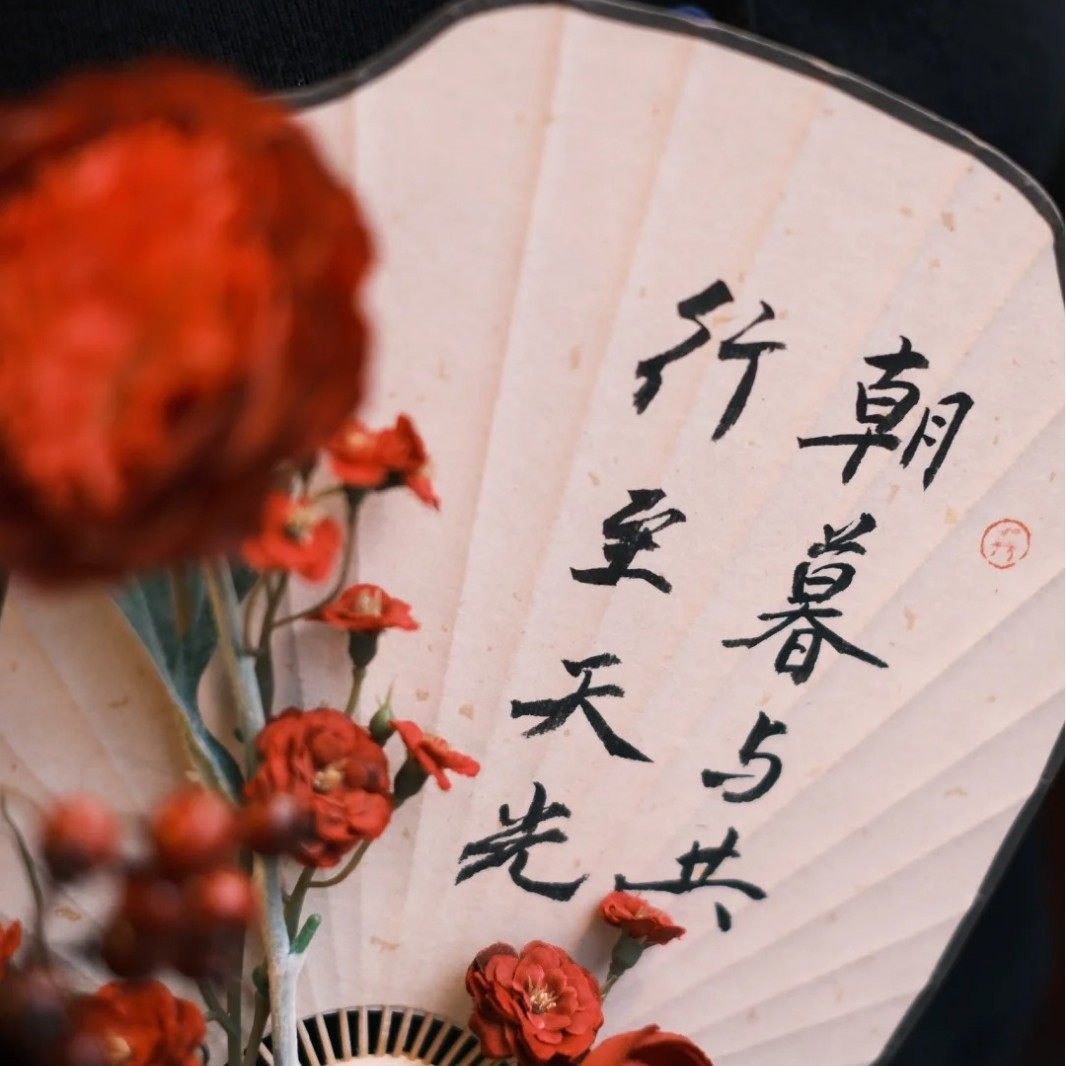 朝暮与共
行至天光